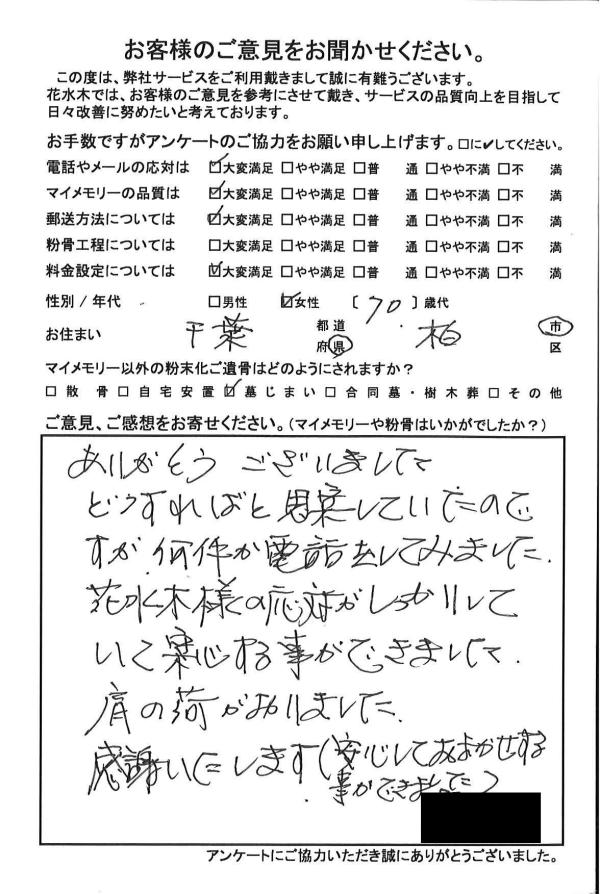 お客様のご意見をお聞かせください。
この度は、弊社サービスをご利用戴きまして誠に有難うございます。
花水木では、お客様のご意見を参考にさせて戴き、サービスの品質向上を目指して
日々改善に努めたいと考えております。
お手数ですがアンケートのご協力をお願い申し上げます。□に✔してください。
電話やメールの応対は ☑大変満足 □やや満足 □普 通 □やや不満 □不 満
マイメモリーの品質は ☑大変満足 □やや満足 □普 通 □やや不満 □不 満
郵送方法については ☑大変満足 □やや満足 □普 通 □やや不満 □不 満
粉骨工程については □大変満足 □やや満足 □普 通 □やや不満 □不 満
料金設定については ☑大変満足 □やや満足 □普 通 □やや不満 □不 満
性別 / 年代 □男性 ☑女性 〔 70 〕歳代
お住まい 千葉 都道府県 柏 市区
マイメモリー以外の粉末化ご遺骨はどのようにされますか?
□散 骨 □自宅安置 ☑墓じまい □合同墓・樹木葬 □その他
ご意見、ご感想をお寄せください。(マイメモリーや粉骨はいかがでしたか?)
ありがとう ございました
どうすればと思案していたので
すが 何件か電話をしてみました.
花水木様の応対がしっかりして
いて安心する事ができました.
肩の荷がおりました.
感謝いたします(安心しておまかせする
事ができました)
アンケートにご協力いただき誠にありがとうございました。